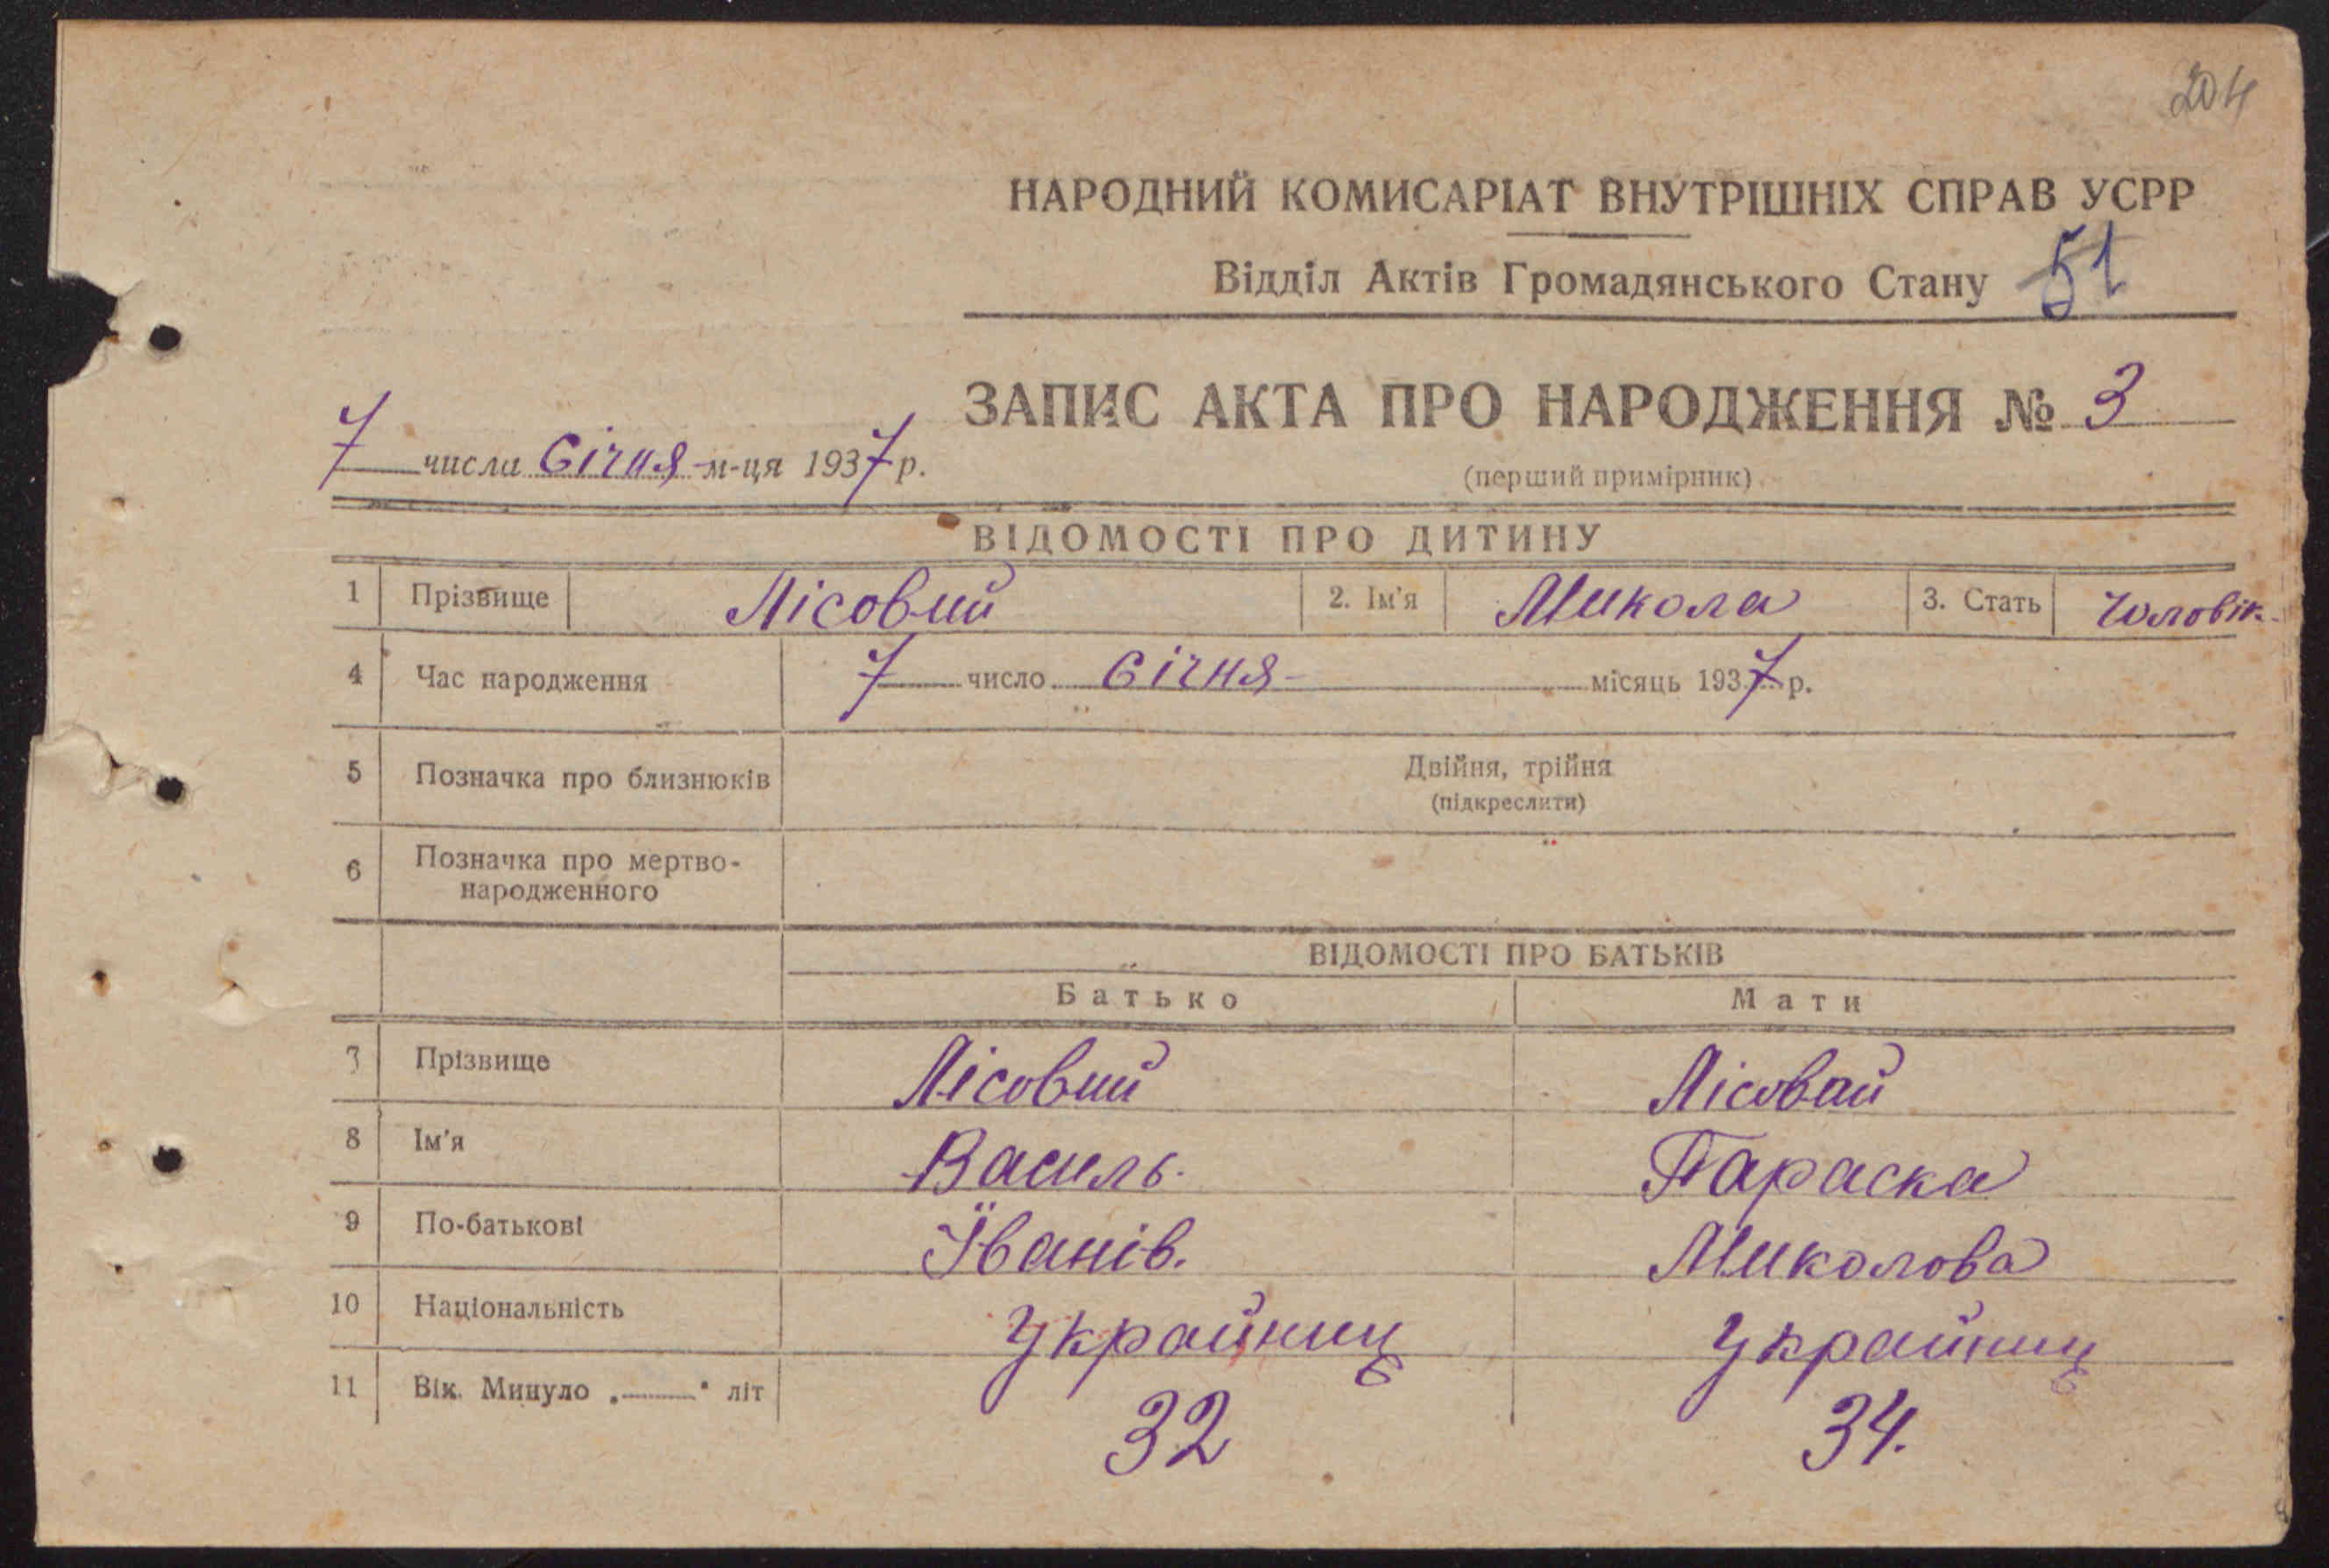 204
НАРОДНИЙ КОМИСАРІАТ ВНУТРІШНІХ СПРАВ УСРР
Відділ Актів Громадянського Стану 51
ЗАПИС АКТА ПРО НАРОДЖЕННЯ № 3
7 числа Січня м-ця 1937 р.
(перший примірник)
ВІДОМОСТІ ПРО ДИТИНУ
1 Прізвище Лісовий 2. Ім'я Микола 3. Стать Чоловік.
4 Час народження 7 число Січня місяць 1937 р.
5 Позначка про близнюків Двійня, трійня
(підкреслити)
6 Позначка про мертво-
народженного
ВІДОМОСТІ ПРО БАТЬКІВ
Батько Мати
7 Прізвище Лісовий Лісовай
8 Ім'я Василь. Параска
9 По-батькові Їванів. Миколова
10 Національність Украйинц Украйинц
11 Вік. Минуло „ “ літ 32 34.